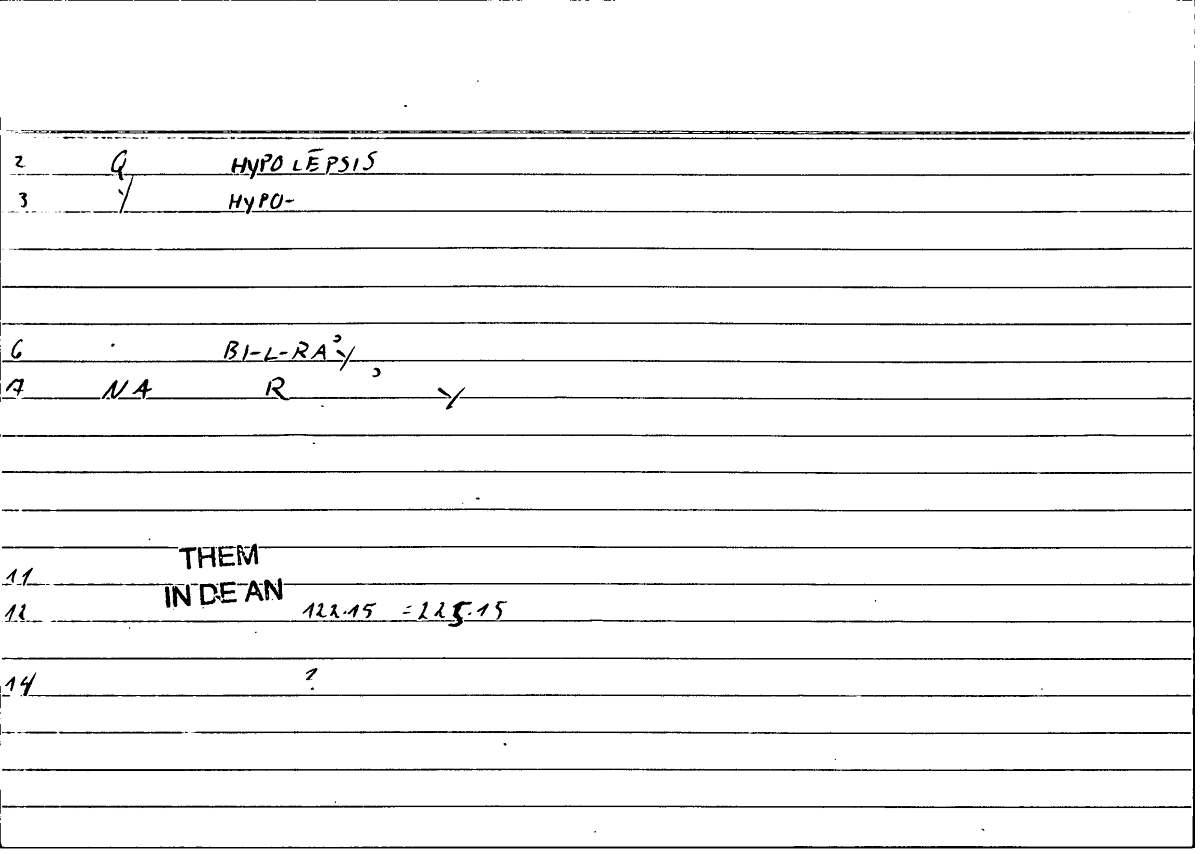 2 G HYPOLĒPSIS
3 Y HYPO-
6 BI-L-RA'Y
7 NA R ' Y
THEM
11
IN DE AN
12 122.15 =225.15
14 ?